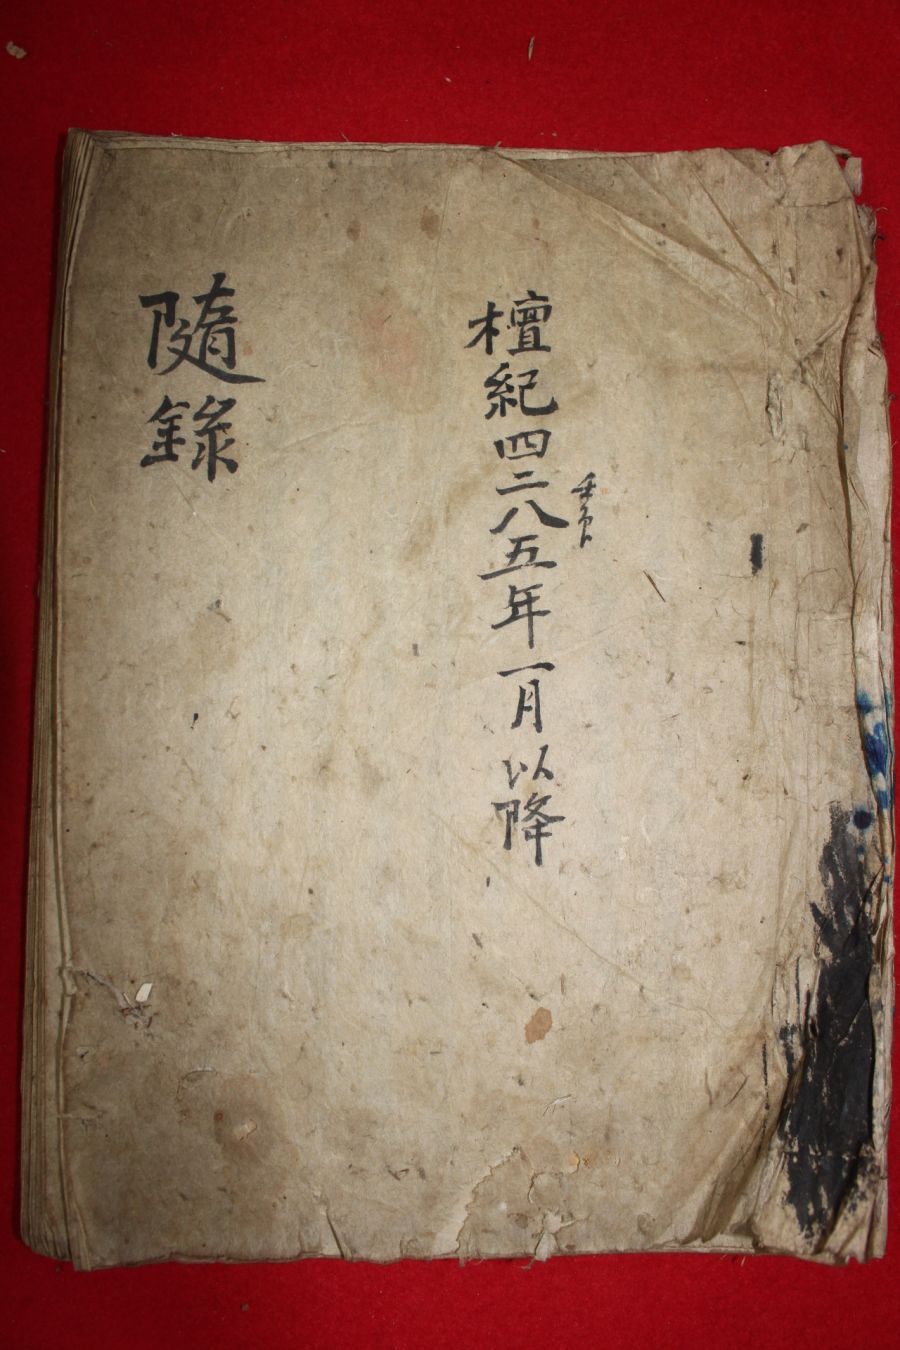 檀紀四二八五年一月以降
隨錄